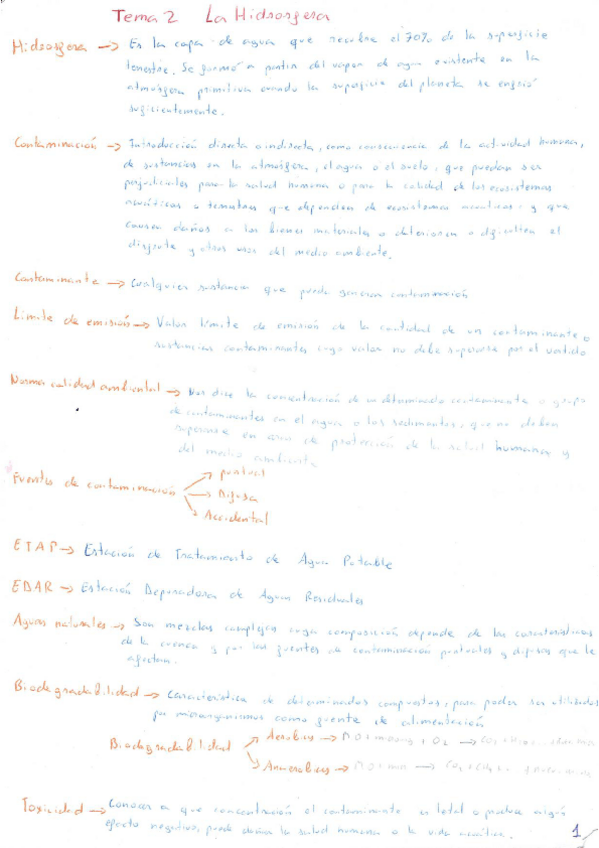 Tema 2 La Hidrosfera
Hidrosfera → Es la capa de agua que recubre el 70% de la superficie
terrestre. Se formó a partir del vapor de agua existente en la
atmósfera primitiva cuando la superficie del planeta se enfrió
suficientemente.
Contaminación → Introducción directa o indirecta, como consecuencia de la actividad humana,
de sustancias en la atmósfera, el agua o el suelo, que puedan ser
perjudiciales para la salud humana o para la calidad de los ecosistemas
acuáticos o terrestres que dependen de ecosistemas acuáticos; y que
causen daños a los bienes materiales o deterioren o dificulten el
disfrute y otros usos del medio ambiente.
Contaminante → Cualquier sustancia que pueda generar contaminación
Límite de emisión → Valor límite de emisión de la cantidad de un contaminante o
sustancias contaminantes cuyo valor no debe superarse por el vertido
Norma calidad ambiental → Nos dice la concentración de un determinado contaminante o grupo
de contaminantes en el agua o los sedimentos, que no deben
superarse en aras de protección de la salud humana y
del medio ambiente
Fuentes de contaminación → puntual
→ Difusa
→ Accidental
ETAP → Estación de Tratamiento de Agua Potable
EDAR → Estación Depuradora de Aguas Residuales
Aguas naturales → Son mezclas complejas cuya composición depende de las características
de la cuenca y por las fuentes de contaminación puntuales y difusas que le
afectan.
Biodegradabilidad → Característica de determinados compuestos, para poder ser utilizados
por microorganismos como fuente de alimentación
Biodegradabilidad → Aerobios → MO + + O2 → CO2 + H2O
→ Anaerobios → MO + → CO2 + CH4 +
Toxicidad → Conocer a que concentración el contaminante es letal o produce algún
efecto negativo, puede dañar la salud humana o la vida acuática.
1